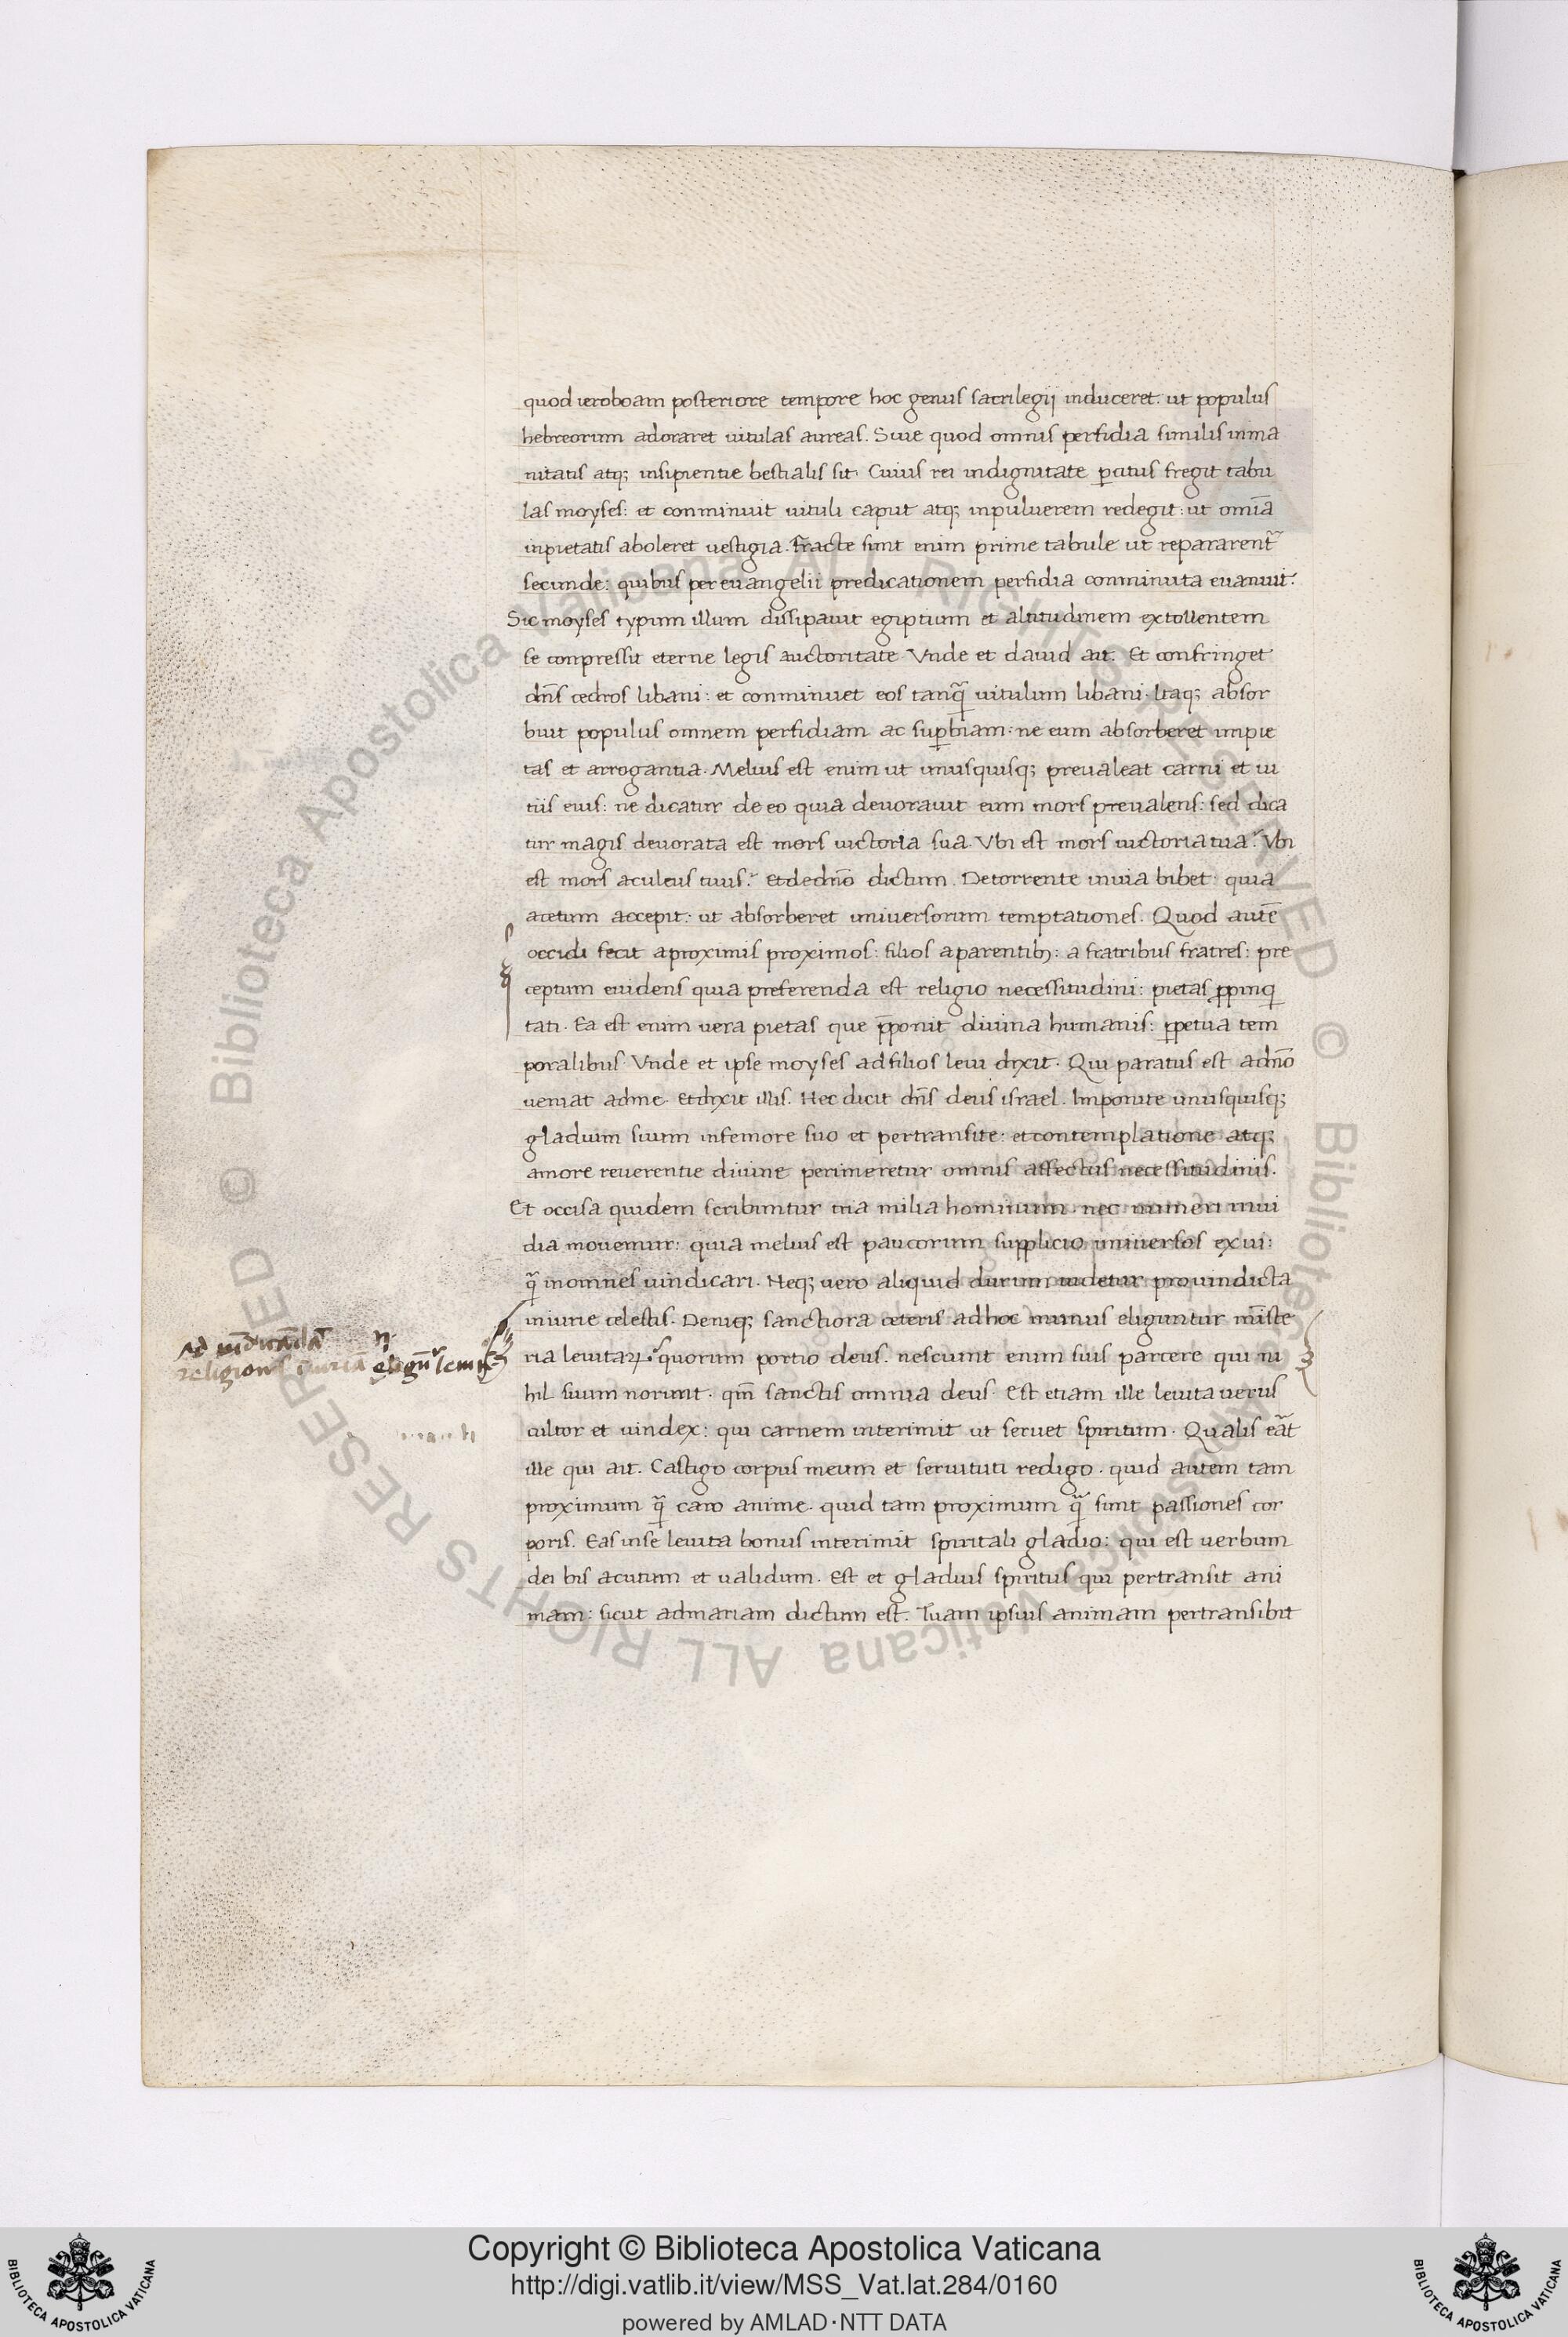 quod ieroboam posteriore tempore hoc genus sacrilegij induceret: ut populus
hebreorum adoraret uitulas aureas. Siue quod omnis perfidia similis inma
nitatis atq; insipientie bestialis sit. Cuius rei indignitate ꝑcitus fregit tabu
las moyses: et conminuit uituli caput atq; inpuluerem redegit: ut omīa
inpietatis aboleret uestigia. fracte sunt enim prime tabule ut repararent᷑
secunde: quibus per euangelii predicationem perfidia comminuta euanuit.
Sic moyses typum illum dissipauit egiptium et altitudinem extollentem
se conpressit eterne legis auctoritate. Vnde et dauid ait. Et confringet
dn̄s cedros libani: et conminuet eos tanq̄ uitulum libani. Itaq; absor
buit populus omnem perfidiam ac suꝑbiam: ne eum absorberet impie
tas et arrogantia. Melius est enim ut unusquisq; preualeat carni et ui
tiis eius: ne dicatur de eo quia deuorauit eum mors preualens: sed dica
tur magis deuorata est mors uictoria sua. Vbi est mors uictoria tua? Vbi
est mors aculeus tuus? Et de dn̄o dictum. De torrente inuia bibet: quia
acetum accepit: ut absorberet uniuersorum temptationes. Quod autē
occidi fecit aproximis proximos: filios aparentib;: a fratribus fratres: pre
ceptum euidens quia preferenda est religio necessitudini: pietas ꝓpinq
tati. Ea est enim uera pietas que p̄ponit diuina humanis: ꝑpetua tem
poralibus. Vnde et ipse moyses adfilios leui dixit. Qui paratus est adn̄o
ueniat adme. Et dixit illis. Hec dicit dn̄s deus israel. Imponite unusquisq;
gladium suum infemore suo et pertransite: et contemplatione atq;
amore reuerentie diuine perimeretur omnis affectus necessitudinis.
Et occisa quidem scribuntur tria milia hominum. nec numeri inui
dia mouemur: quia melius est paucorum supplicio uniuersos exui:
q̄ inomnes uindicari. Neq; uero aliquid durum uidetur prouindicta
iniurie celestis. Deniq; sanctiora ceteris adhoc munus eliguntur mīste
ria leuitaꝝ. quorum portio deus. nesciunt enim suis parcere qui ni
hil suum norunt. qm̄ sanctis omnia deus. Est etiam ille leuita uerus
cultor et uindex: qui carnem interimit ut seruet spiritum. Qualis eāt
ille qui ait. Castigo corpus meum et seruituti redigo. quid autem tam
proximum q̄ caro anime. quid tam proximum q̄ sunt passiones cor
poris. Eas inse leuita bonus interimit spiritali gladio: qui est uerbum
dei bis acutum et ualidum. Est et gladius spiritus qui pertransit ani
mam: sicut admariam dictum est. Tuam ipsius animam pertransibit
Copyright © Biblioteca Apostolica Vaticana
http://digi.vatlib.it/view/MSS_Vat.lat.284/0160
powered by AMLAD·NTT DATA
© Biblioteca Apostolica Vaticana ALL RIGHTS RESERVED © Biblioteca Apostolica Vaticana ALL RIGHTS RESERVED
BIBLIOTECA APOSTOLICA VATICANA
BIBLIOTECA APOSTOLICA VATICANA